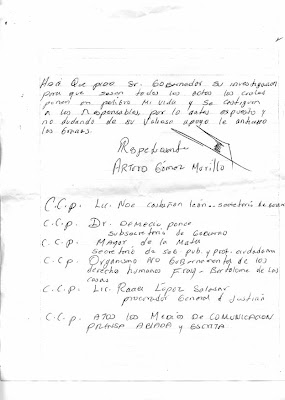 Así Que pido Sr. Gobernador su investigación
para que sean todos los actos los cuales
ponen en peligro mi vida y se castiguen
a los Responsables por lo antes expuesto y
no dudando de su valioso apoyo le anticipo
las gracias.
Respetuosamente
Arturo Gómez Morillo
C.C.p. Lic. Noe Castañon León - secretario de
C.C.p. Dr. ponce
subsecretario de Gobierno
C.C.p. Mayor de la Mata
secretario de seg. pub. y prot. ciudadana
C.C.p. Organismo NO Gubernamental de los
derecho humanos Fray - Bartolome de las
casas
C.C.p. Lic. Raciel López Salazar
procurador General d Justicia
C.C.p. A TODO LOS MEDIOS DE COMUNICACION
PRENSA y ESCRITA.